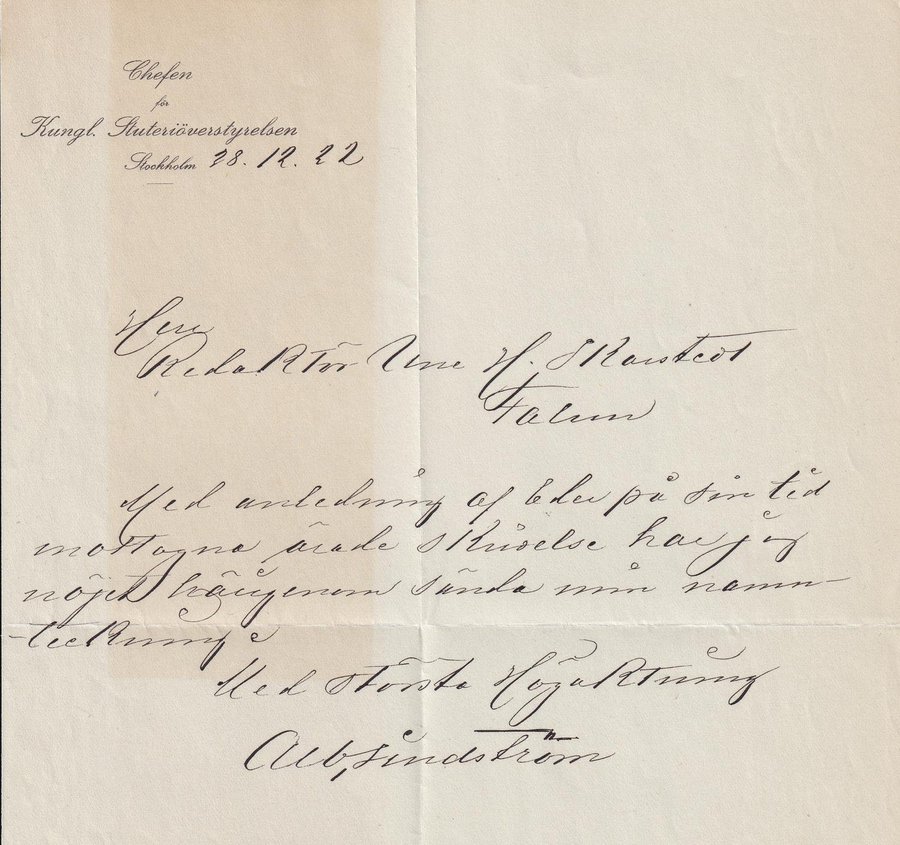 Chefen
för
Kungl. Stuteriöverstyrelsen
Stockholm 28.12.22
Herr
Redaktör Une H. Skarstedt
Falun
Med anledning af Eder på sin tid
mottagna ärade skrivelse har jag
nöjet härigenom sända min namn-
teckning.
Med största Högaktning
Alb. Lindström